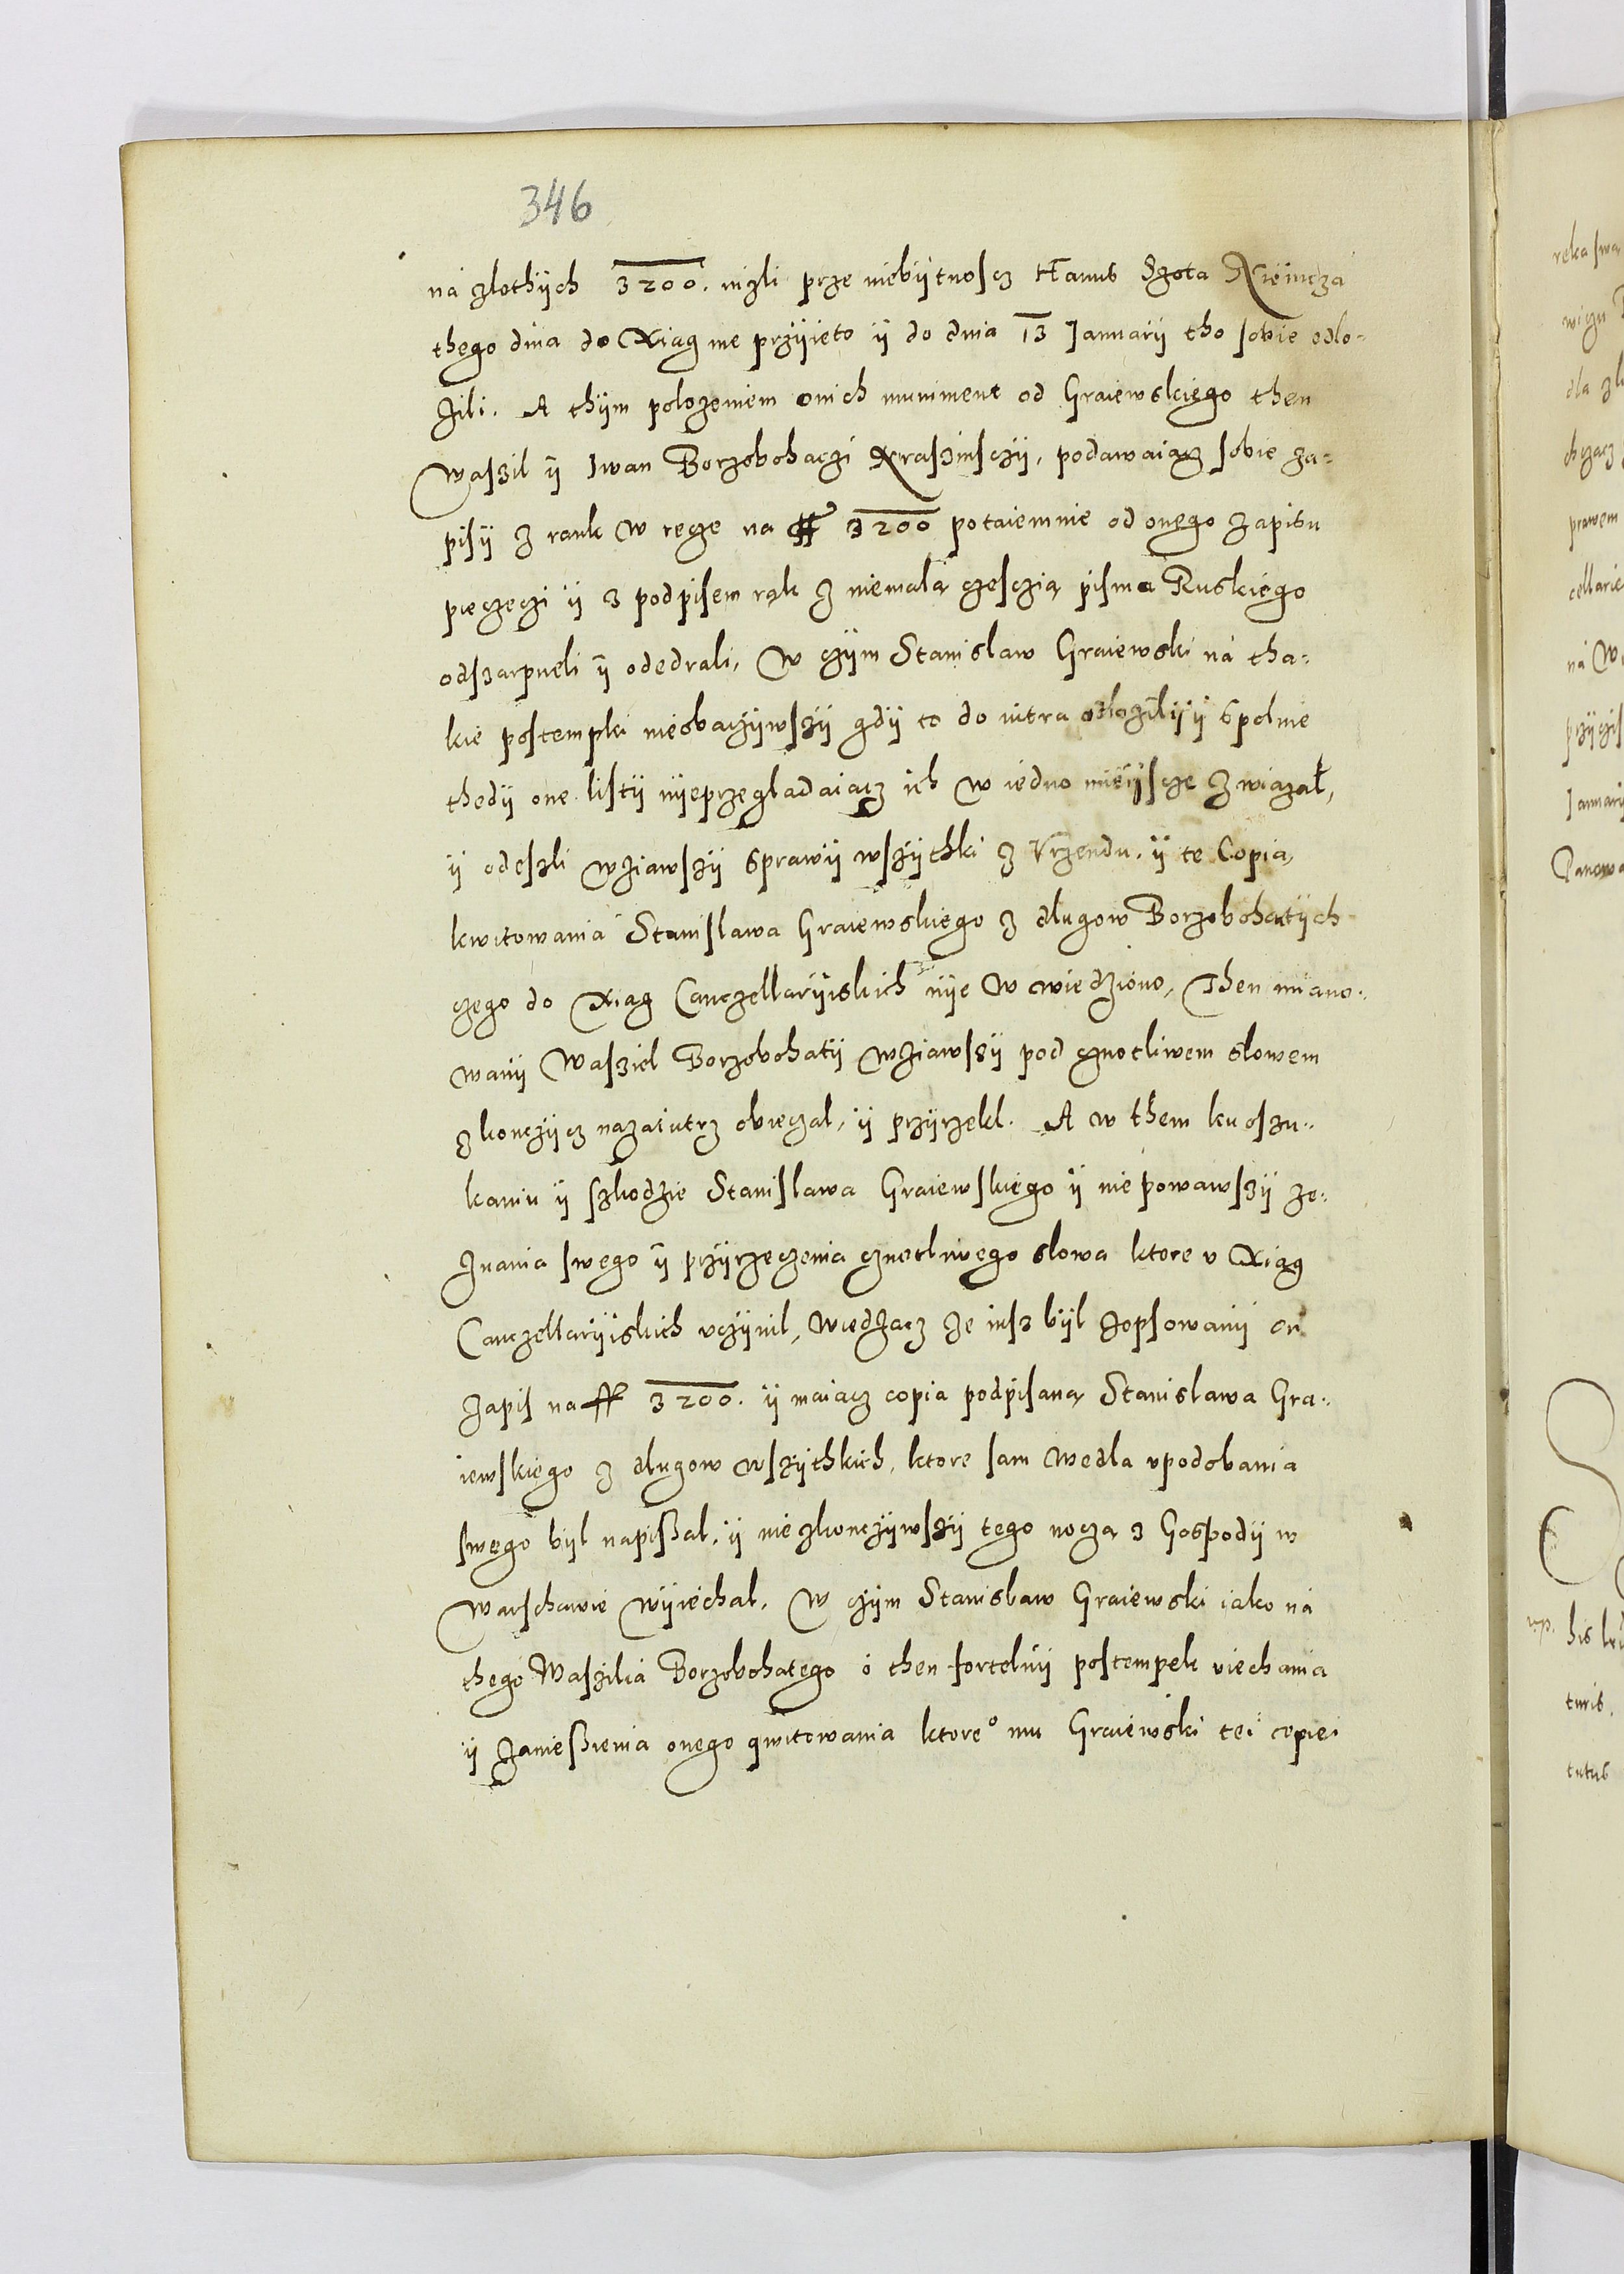 346
ná zlothÿch 3200. nizli prze niebÿtnoscz Hanus Szota Niemcza
thego dnia do Xiag nie przÿieto ÿ do dnia 13 Januarÿ tho sobie odlo-
zili. A thÿm polozeniem onich muniment od Graiewskiego then
Waszil ÿ Iwan Borzobohaczi Kraszinsczÿ, podawaiącz sobie za-
pisÿ z rank w ręcze na ff 3200 potaiemnie od onego zapisu
pieczęczi ÿ z podpisem rąk z niemałą czesczią pisma Ruskiego
odszarpneli ÿ odedrali, w czÿm Stanisław Graiewski ná tha-
kie postempki nieobaczÿwszÿ gdÿ to do iutra odłozili ÿ spolnie
thedÿ one listÿ nÿeprzegladaiącz ich w iedno mieÿscze związał,
ÿ odeszli wziawszÿ sprawÿ wszÿthki z Vrzendu. ÿ te Copią
kwitowania Stanisława Graiewskiego z długow Borzobohatÿch
czego do Xiąg Canczellarÿiskich nÿe wwiedziono, Then miano-
wanÿ Wasziel Borzobohatÿ wziawszÿ pod cznotliwem słowem
zkonczÿcz nazaiutrz obieczal, ÿ przÿrzekl. A w them ku oszu-
kaniu ÿ szkodzie Stanisława Graiewskiego ÿ niepowawszÿ ze-
znania swego ÿ przÿrzeczenia cznotliwego słowa ktore v Xiąg
Canczellarÿiskich vczÿnil, wiedzącz ze iusz bÿl zopsowanÿ on
zapis na ff 3200. ÿ maiącz copią podpisaną Stanisława Gra-
iewskiego z długow wszÿthkich, ktore sam wedla vpodobania
swego bÿl napißał, ÿ niezkonczÿwszÿ tego noczą z Gospodÿ w
Warschawie wÿiechal. W czÿm Stanisław Graiewski iako ná
thego Waszilia Borzobohatego ó then fortelnÿ postempek viechania
ÿ zanießienia onego qwitowania ktore° mu Graiewski tei copiei